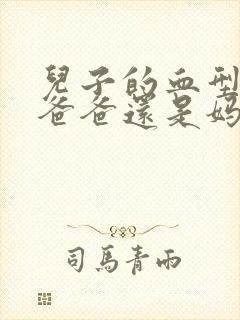 兒子的血型
爸爸還是媽
司馬青雨